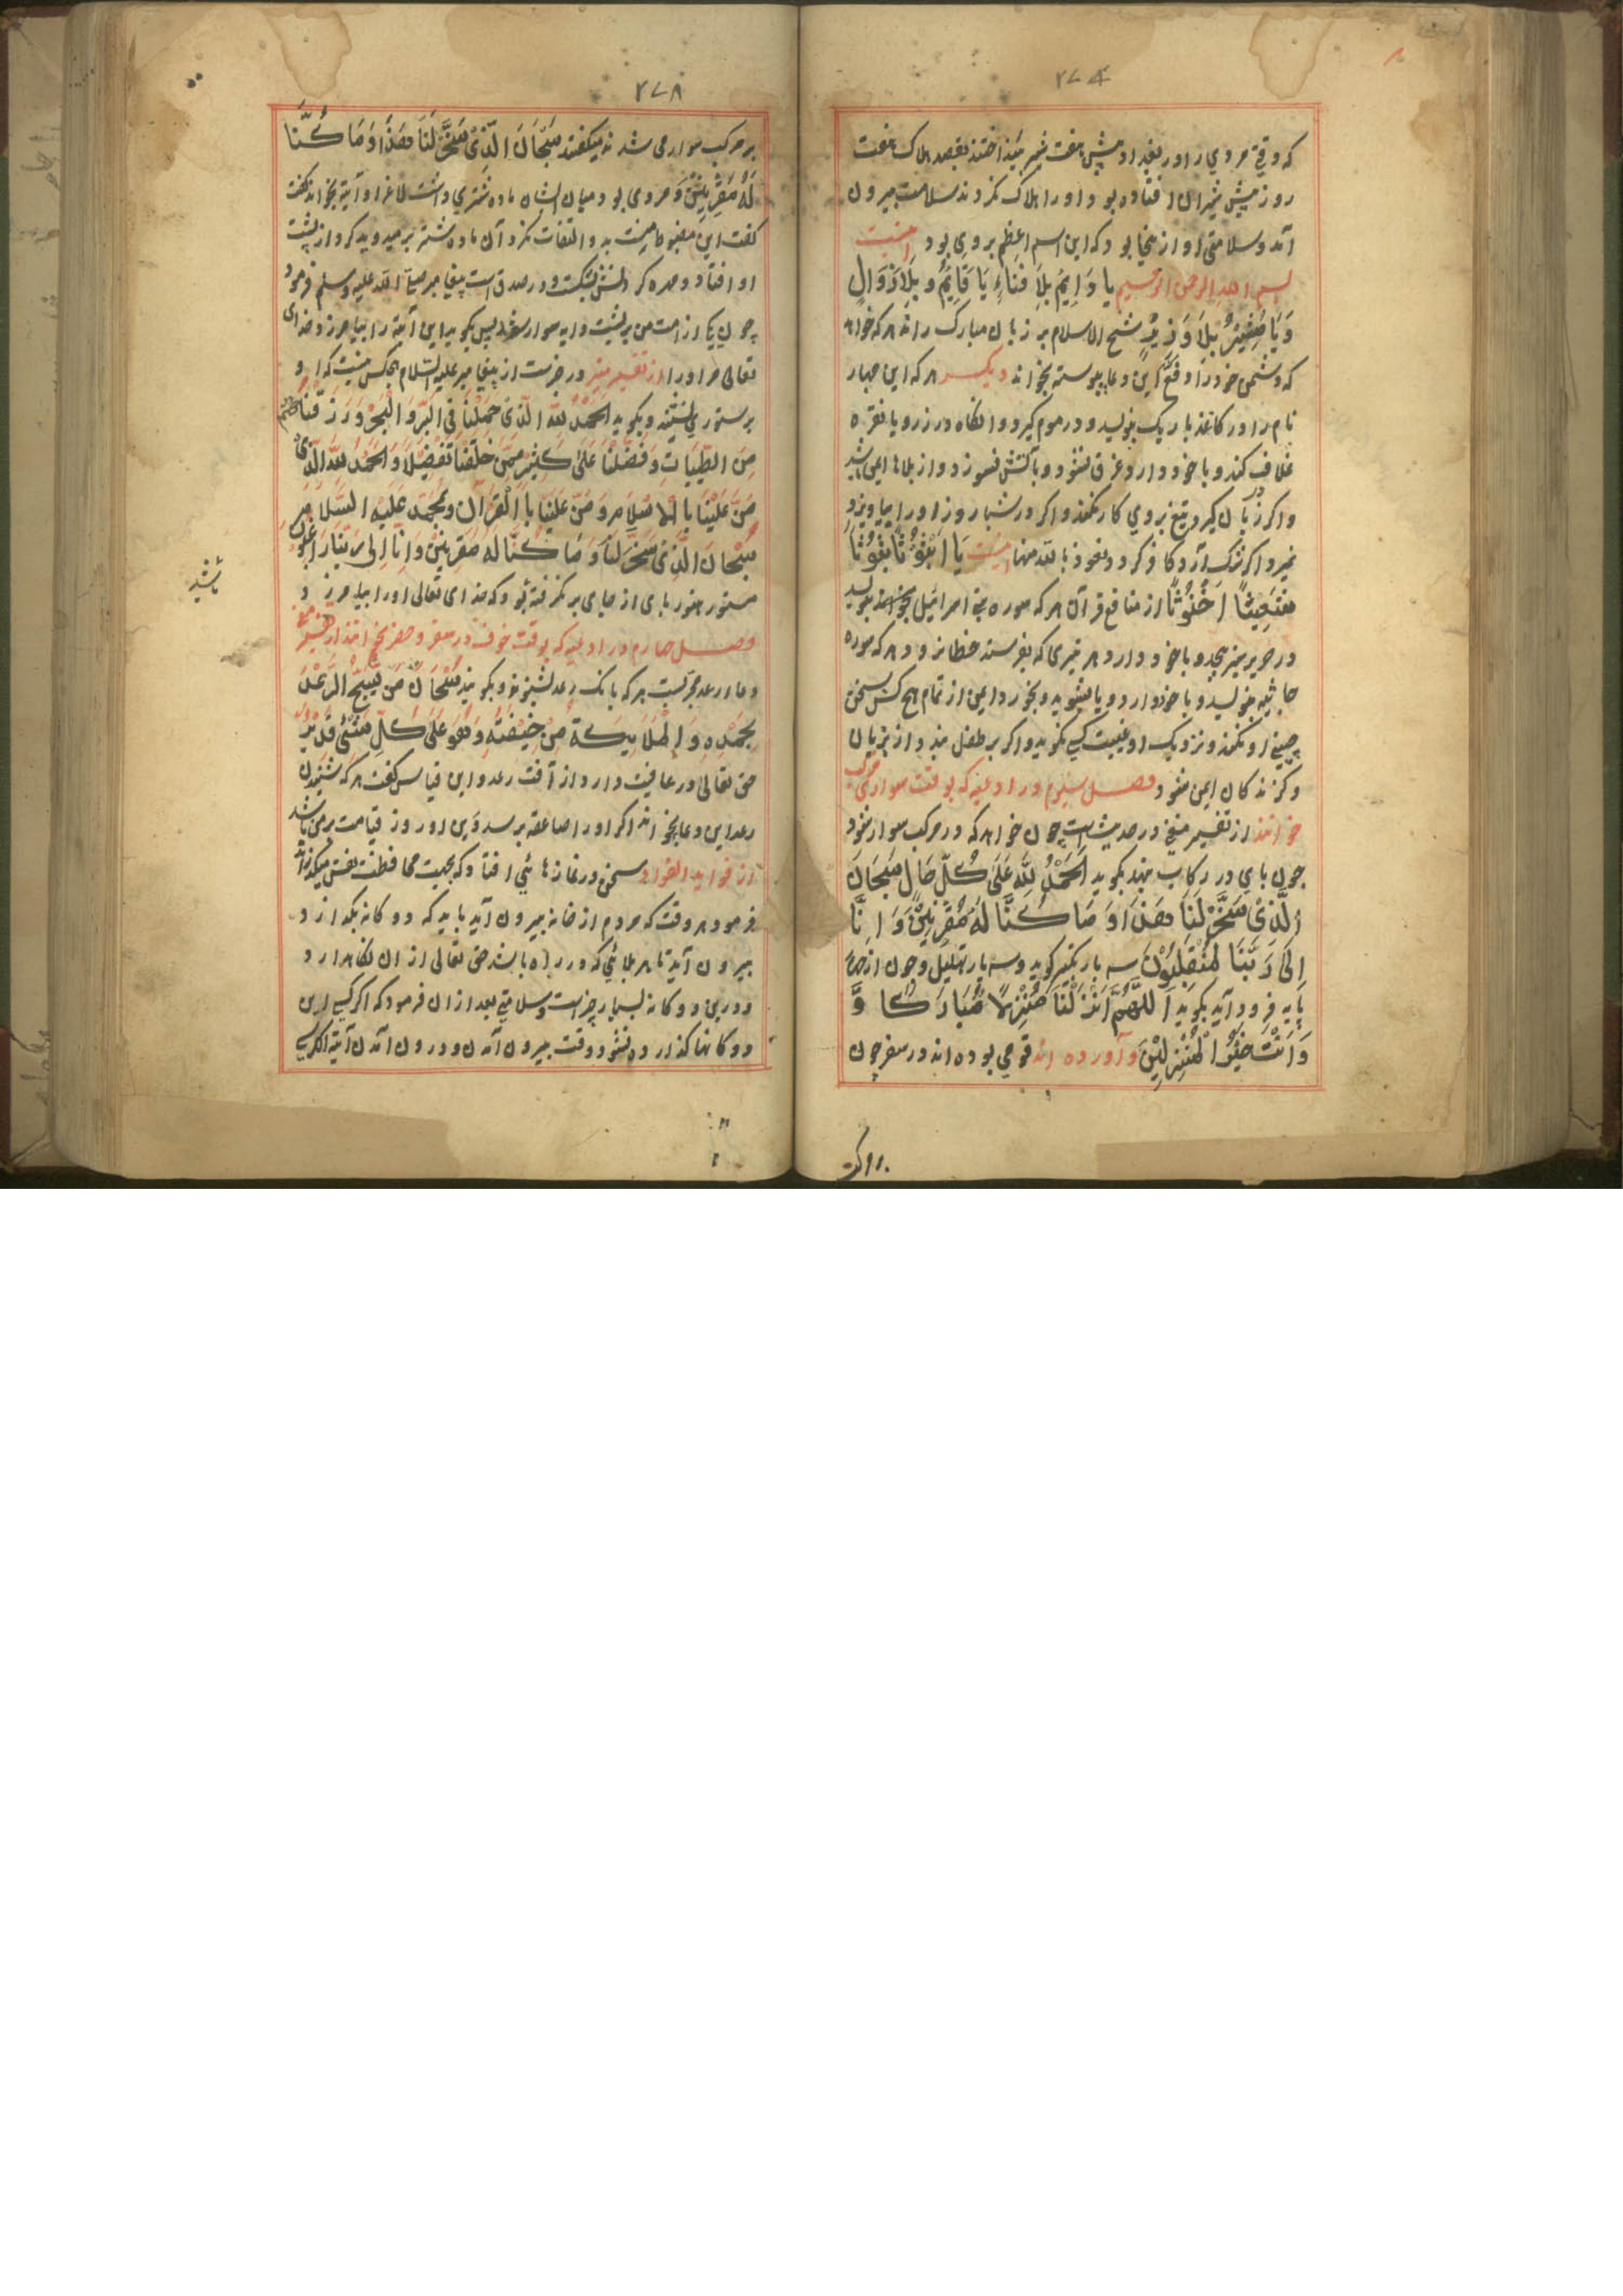 ۲۷۴
که وقتی مردی را در بغداد پیش هفت شیر بینداختند بقصد هلاک هفت
روز پیش شیران افتاده بود او را هلاک نکردند سلامت بیرون
آمد و سلامتی او از ینجا بود که این اسم اعظم بر وی بود اینست
بسم الله الرحمن الرحیم یا دَایِمُ بِلَا فَنَاءٍ یَا قَایِمُ بِلَا زَوَالٍ
وَیَا مُشِیْرُ بِلَا وَزِیْرٍ شیخ الاسلام بر زبان مبارک راند هر که خواهد
که دشمن خود را دفع کند این دعا پیوسته بخواند دیگر هر که این چهار
نام را در کاغذ باریک بنویسد و در موم گیرد و انگاه در زر و یا نقره
غلاف کند و با خود دارد غرق نشود و بآتش نسوزد و از بلاها ایمن باشد
و اگر زبان گیرد تیغ بروی کار نکند و اگر در شبها روز او را بیاویزد
نمیرد اگر شک آرد کافر گردد نعوذ بالله منها اینست یَا
از منافع قرآن هر که سوره بنی اسرائیل بخواند بنویسد
در حریر سبز پیچد و با خود دارد هر تیری که بفرستد خطا نرود و هر که سوره
جاثیه بنویسد و با خود دارد و یا بشوید و بخورد ایمن از نمام هیچ کس سخن
چینی او نکند و نزدیک او غیبت کسی نگوید و اگر بر طفل بندد از پریان
و گزندگان ایمن شود فصل سیوم در ادعیه که بوقت سواری مرکب
خوانند از تفسیر مغنی در حدیث است چون خواهد که در مرکب سوار شود
چون پای در رکاب نهد بگوید اَلْحَمْدُ لِلّٰهِ عَلَی کُلِّ حَالٍ سُبْحَانَ
الَّذِیْ سَخَّرَ لَنَا هٰذَا وَمَا کُنَّا لَهُ مُقْرِنِیْنَ وَاِنَّا
اِلَی رَبِّنَا لَمُنْقَلِبُوْنَ سه بار تکبیر گوید و سه بار تهلیل و چون از
پایه فرود آید بگوید اَللّٰهُمَّ اَنْزِلْنَا مُنْزَلًا مُبَارَکًا وَّ
وَاَنْتَ خَیْرُ الْمُنْزِلِیْنَ و آورده اند قومی بوده اند در سفر چون
۲۷۸
بر مرکب سوار می شدند میگفتند سُبْحَانَ الَّذِیْ سَخَّرَ لَنَا هٰذَا وَمَا کُنَّا
لَهُ مُقْرِنِیْنَ و مردی بود میان ایشان ماده شتری داشت لاغر او آیة نخواند گفت
گفت این مضبوط نیست بدو التفات نکرد آن ماده شتر برمید و بدکرد از پشت
او افتاد و مهره گردنش بشکست و در صدق است پیغامبر صلی الله علیه وسلم فرمود
چون یکی از امت من بر پشت دابه سوار شد پس بگوید این آیة را بیامرزد خدای
تعالی مر او را از تفسیر منیر در خبرست از پیغامبر علیه السلام هیچکس نیست که او
بر ستوری نشیند و بگوید الحَمْدُ لله الَّذِیْ حَمَلْنَا فِی البَرِّ وَ الْبَحْرِ وَرَزَقْنَا
مِنَ الطَّیِّبَاتِ وَفَضَّلْنَا عَلَی کَثِیْرٍ مِمَّنْ خَلَقْنَا تَفْضِیْلًا وَالْحَمْدُ لله الَّذِیْ
مَنَّ عَلَیْنَا بِالْاِسْلَامِ وَمَنَّ عَلَیْنَا بِالْقُرْآنِ وَبِمُحَمَّدٍ عَلَیْهِ السَّلَامُ
سُبْحَانَ الَّذِیْ سَخَّرَ لَنَا وَمَا کُنَّا لَهُ مُقْرِنِیْنَ وَاِنَّا اِلَی رَبِّنَا
ستور هنوز پای از جای بر نگرفته بود که خدای تعالی او را بیامرزد
باشد
فصل چهارم در ادعیه که بوقت خوف در سفر و حضر بخوانند از تفسیر
دعا رعد مجربست هر که بانک رعد بشنود بگوید سُبْحَانَ مَنْ یُّسَبِّحُ الرَّعْدُ
بِحَمْدِهِ وَ الْمَلَایِکَةُ مِنْ خِیْفَتِهِ وَهُوَ عَلَی کُلِّ شَئٍ قَدِیْرٌ
حق تعالی در عافیت دارد از آفت رعد و ابن قیاس گفت هر که شنیدن
رعد این دعا بخواند اگر او را صاعقه برسد دین او روز قیامت بر من باشد
از فواید الفواد سخن در نمازها می افتاد که بجهت محافظت نفس میگذارند
فرمود هر وقت که مردم از خانه بیرون آید باید که دوگانه بگذارد
بیرون آید تا هر بلائی که در راه باشد حق تعالی از ان نگاهدارد
و درین دوگانه بسیار خیراست و سلامتی بعد از ان فرمود که اگر کسی این
دوگانها گذارده نشود وقت بیرون آمدن و درون آمدن آیة الکرسی